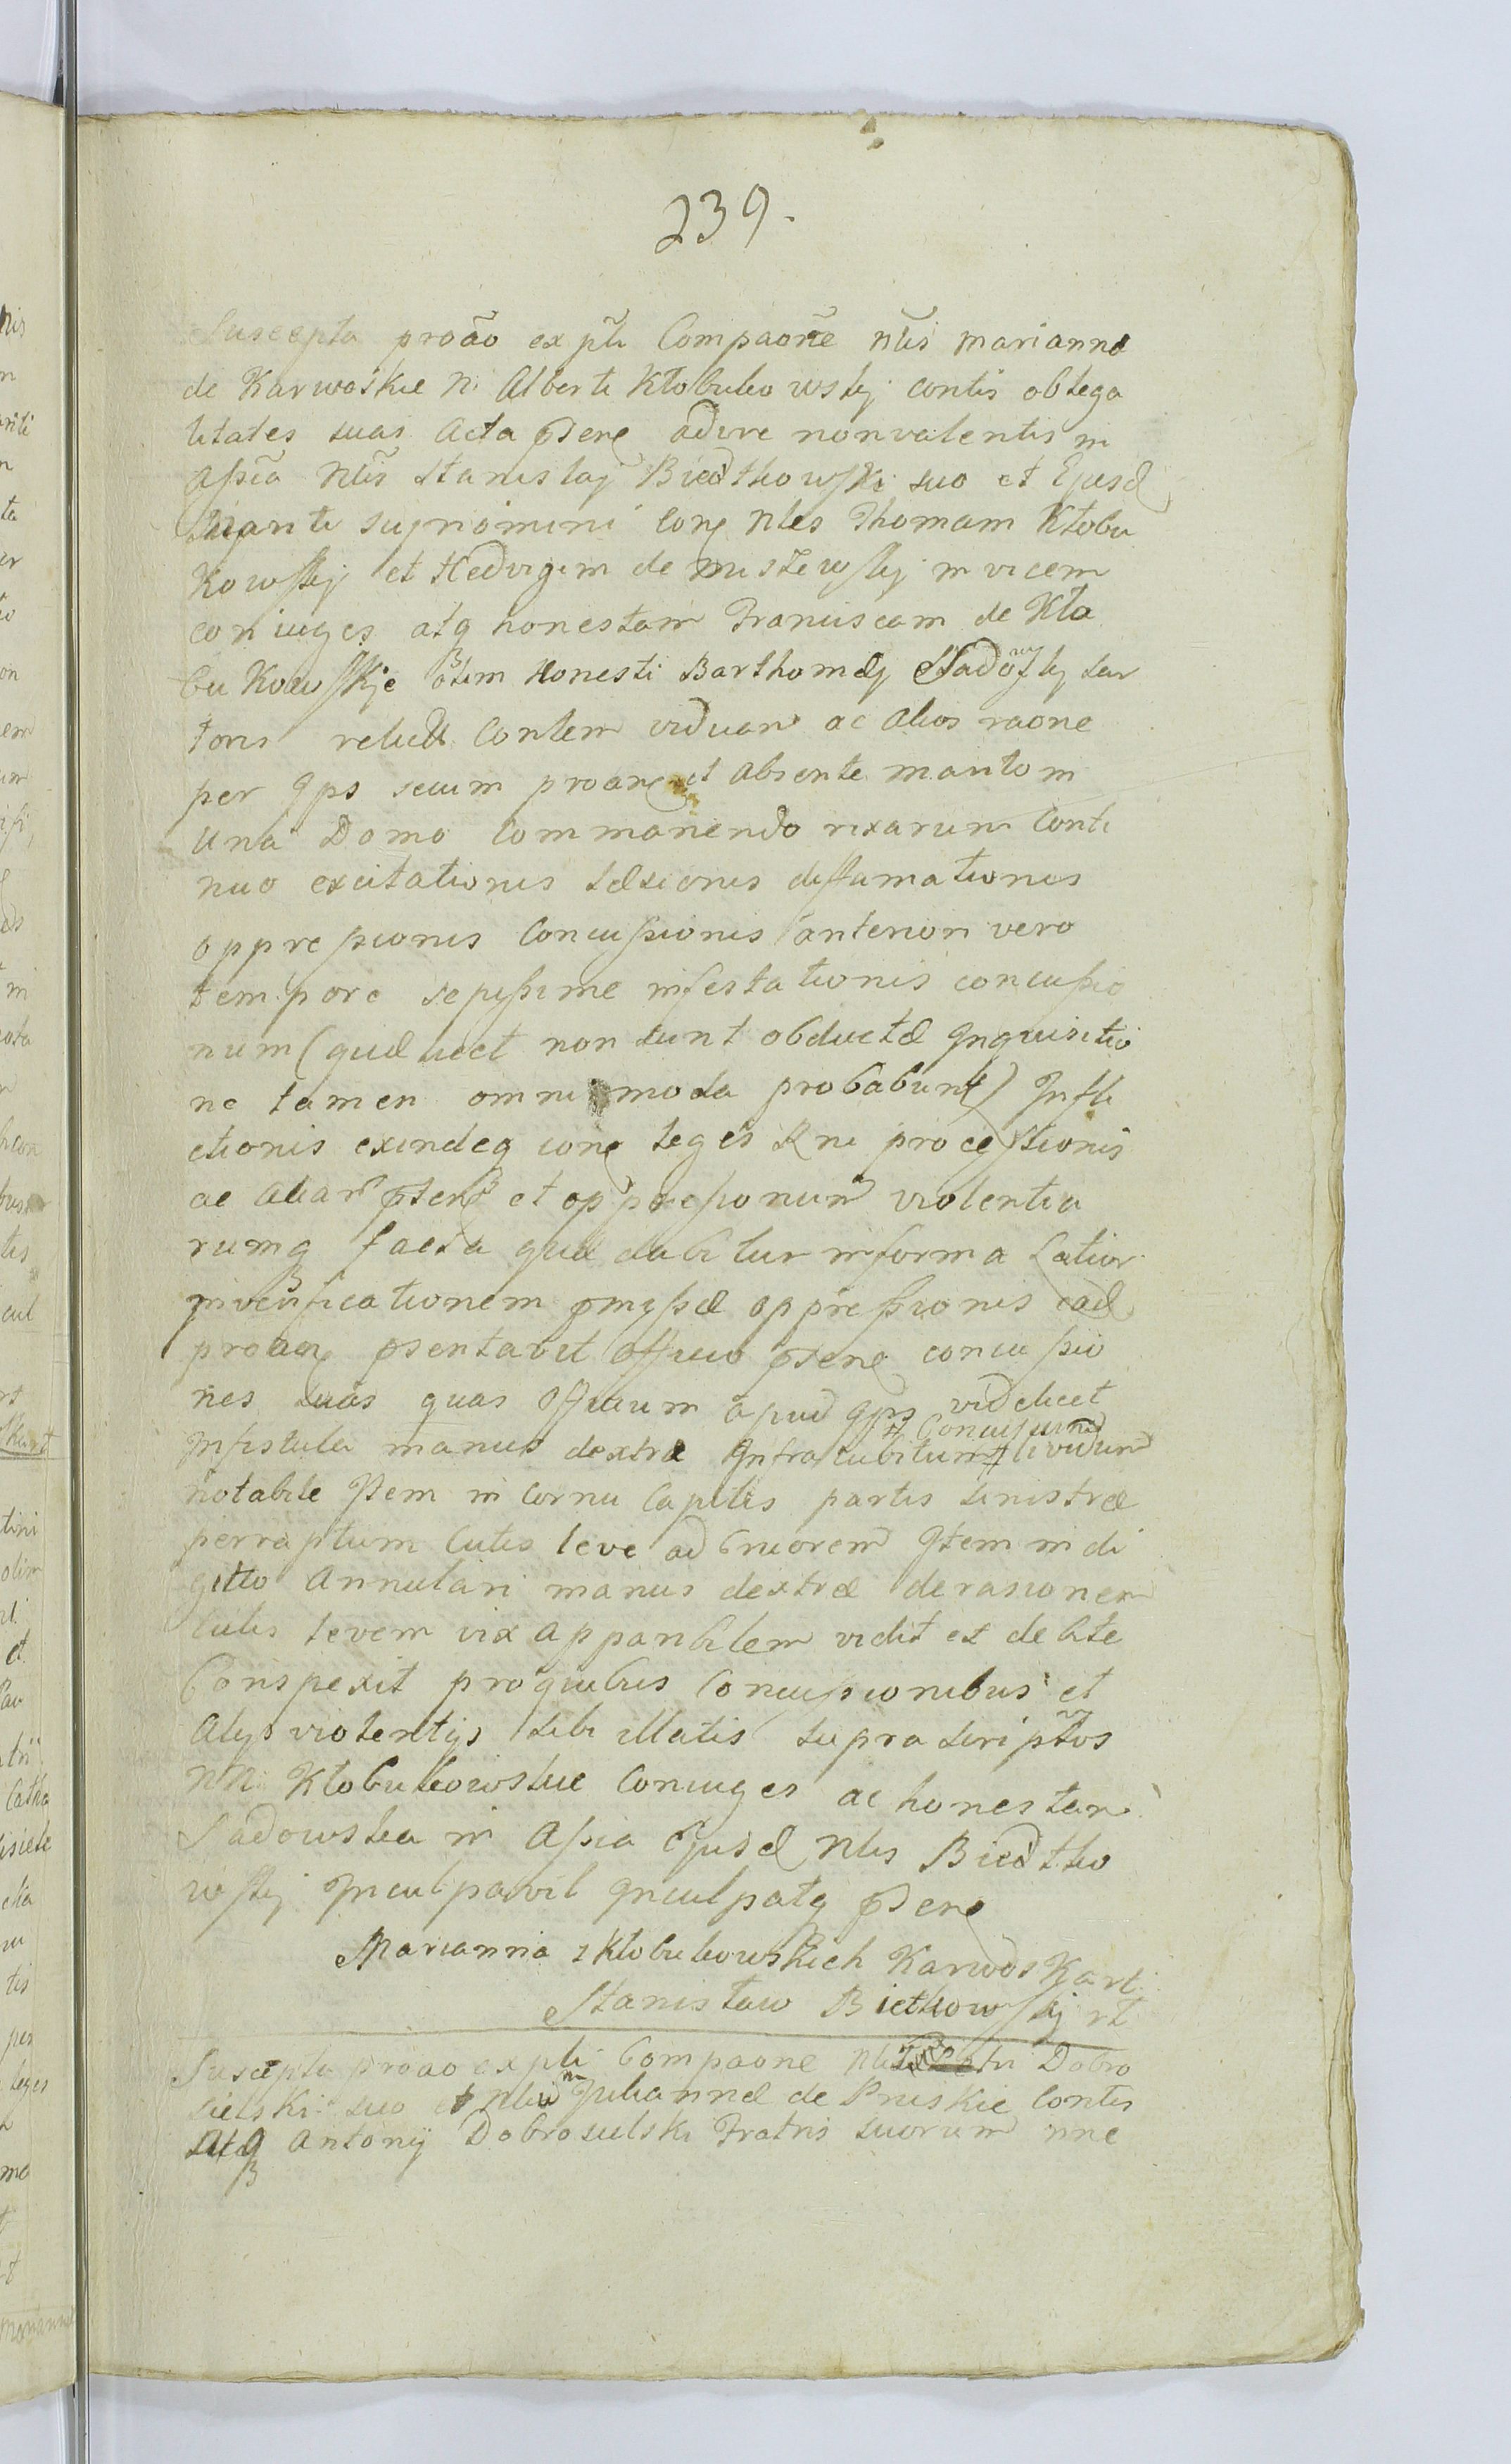 239.
Suscepta proāo ex pti Compaoñe Nlis Marianna
de Karwoskie N. Alberti Kłobukowskj contis ob lega
litates suas Acta pñs adire non valentis in
Assia Nlis Stanislaj Biedtkowski suo et Ejusd
Mariti sup nomini Nles Thomam Kłobu
kowskj et Hedvigem de Misiewskj in vicem
coniuges atq honestam Franciscam de Kło
bukowskje olim Honesti Barthomej Sadowskj sar
toris relict Contem viduam ac alios raone
per qps secum proane et absente marito in
una Domo Commanendo rixarum Conti
nuo excitationis læsionis diffamationis
oppressionis Concussionis anteriori vero
tempore sepissime infestationis concussio
num (quæ licet non sunt obductæ Inquisitio
ne tamen omnimoda probabunt) Infli
ctionis exindeq leges Rni processionis
ac aliar et oppressionum violentia
rumq facta quæ dabitur in forma latior
in verificationem pmissæ oppressionis ead
proane psentavit officio concussio
nes suas quas officium apud qps videlicet
In fistula manus dextræ Infra cubitum # lividum
# Concussum
notabile Item in Cornu Capitis partis sinistræ
perraptum Cutis leve ad Cruorem Item in di
gitto Annulari manus dextræ derasionem
Cutis levem vix apparibilem vidit et de bite
Conspexit pro quibus Concussionibus et
Alys violentijs sibi illatis suprascriptos
NN Kłobukowskie Coniuges ac honestam
Sadowska in Assia Ejusd Nlis Biedtko
wskj Inculpavit Inculpatq
Marianna z Kłobukowskich Karwoska rt
Stanisław Bietkowskj rt
Suscepta proao ex pti Compaone Nlis Dobro
sielski suo et Nlium Julianne de Pruskie Contis
Atq Antonij Dobrosielski Fratris suorum nne